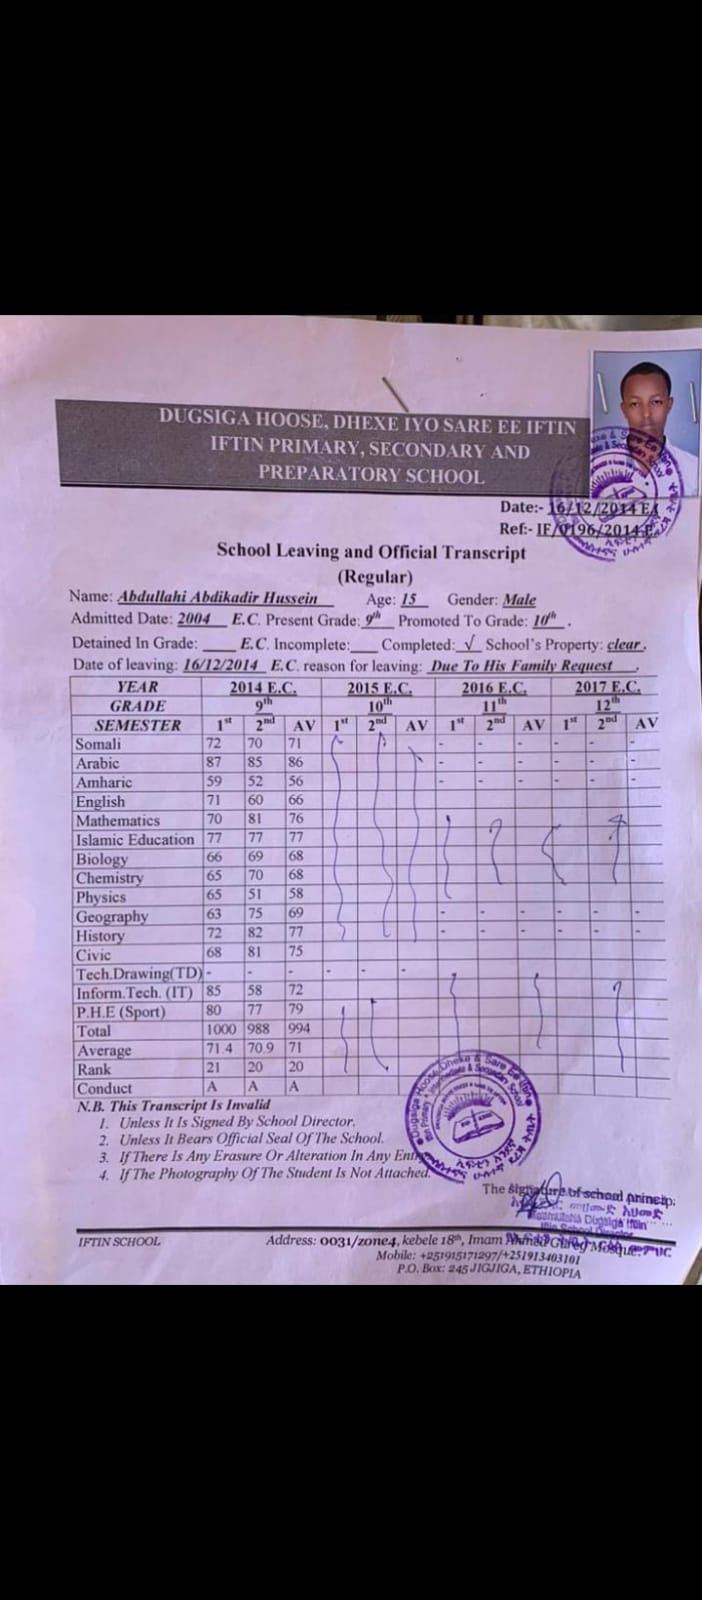 DUGSIGA HOOSE, DHEXE IYO SARE EE IFTIN
IFTIN PRIMARY, SECONDARY AND
PREPARATORY SCHOOL
Date:- 16/12/2014 E.
Ref:- IF/0196/2014 E.
School Leaving and Official Transcript
(Regular)
Name: Abdullahi Abdikadir Hussein Age: 15 Gender: Male
Admitted Date: 2004 E.C. Present Grade: 9th Promoted To Grade: 10th .
Detained In Grade: ____ E.C. Incomplete:___ Completed: √ School's Property: clear.
Date of leaving: 16/12/2014 E.C. reason for leaving: Due To His Family Request .
YEAR 2014 E.C. 2015 E.C. 2016 E.C. 2017 E.C.
GRADE 9th 10th 11th 12th
SEMESTER 1st 2nd AV 1st 2nd AV 1st 2nd AV 1st 2nd AV
Somali 72 70 71 - - - - - -
Arabic 87 85 86 - - - - - -
Amharic 59 52 56 - - - - - -
English 71 60 66
Mathematics 70 81 76
Islamic Education 77 77 77
Biology 66 69 68
Chemistry 65 70 68
Physics 65 51 58
Geography 63 75 69 - - - - - -
History 72 82 77 - - - - - -
Civic 68 81 75
Tech.Drawing(TD) - - - - - -
Inform.Tech. (IT) 85 58 72
P.H.E (Sport) 80 77 79
Total 1000 988 994
Average 71.4 70.9 71
Rank 21 20 20
Conduct A A A
N.B. This Transcript Is Invalid
1. Unless It Is Signed By School Director.
2. Unless It Bears Official Seal Of The School.
3. If There Is Any Erasure Or Alteration In Any
4. If The Photography Of The Student Is Not Attached.
The signature of school princip.
IFTIN SCHOOL
Address: 0031/zone4, kebele 18th, Imam Ahmed Gureg Mosque.
Mobile: +251915171297/+251913403101
P.O. Box: 245 JIGJIGA, ETHIOPIA